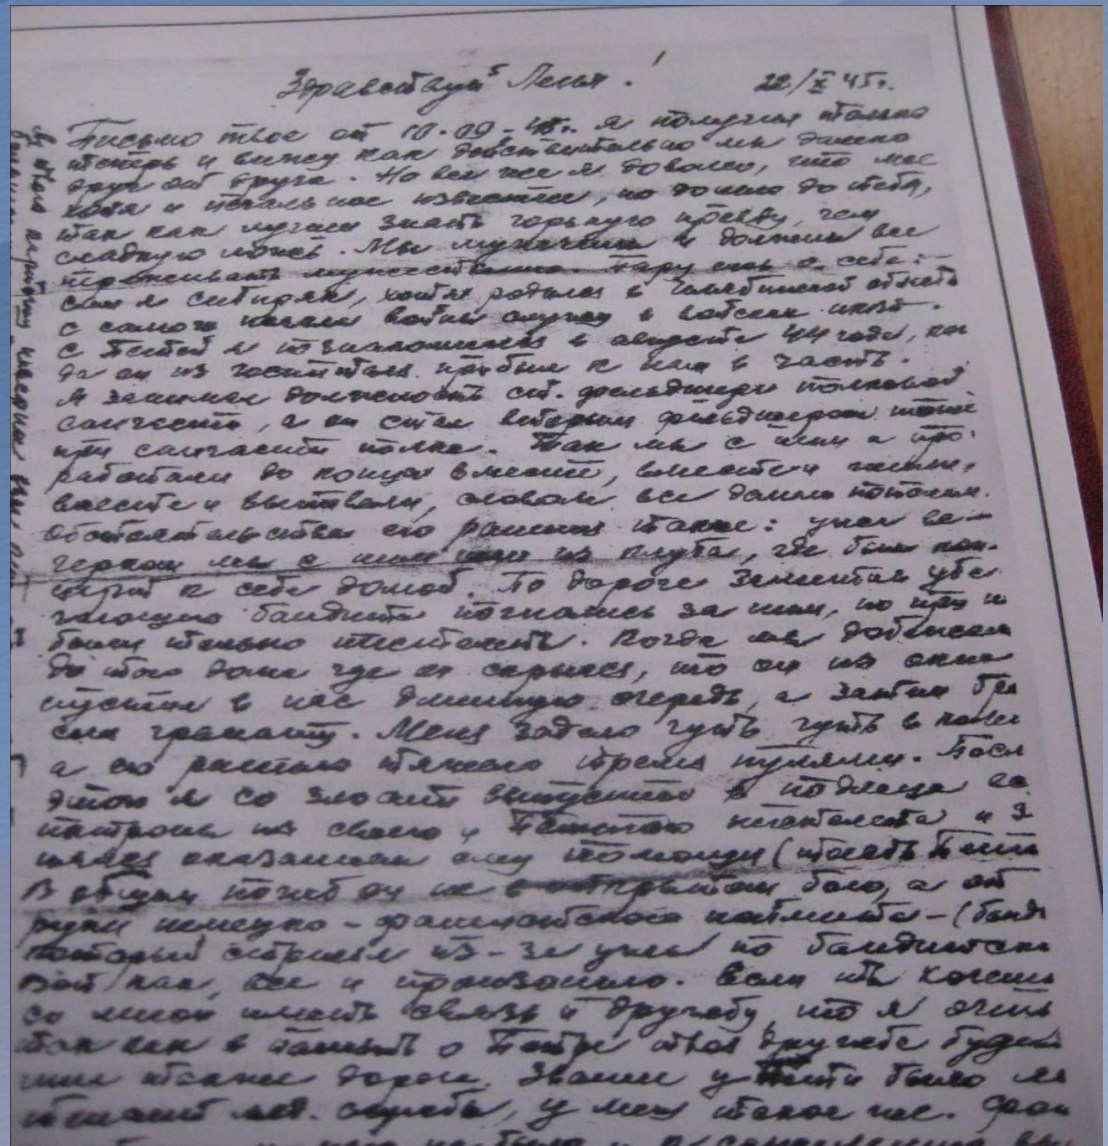 Здравствуй Леня! 22/X 45г.
Письмо твое от 10.09-45г. я получил только
теперь и вижу как действительно мы далеко
друг от друга. Но все же я доволен, что мое
хотя и печальное известие, но дошло до тебя,
так как лучше знать горькую правду, чем
сладкую ложь. Мы мужчины и должны все
переживать мужественно. Пару слов о себе:
сам я сибиряк, хотя родился в Челябинской области
с самого начала войны служу в войсках НКВД.
с Петей я познакомился в августе 44 года, ког
да он из госпиталя прибыл к нам в часть.
Я занимал должность ст. фельдшера полковой
санчасти, а он стал вторым фельдшером
при санчасти полка. Так мы с ним и про-
работали до конца вместе, вместе и жили,
вместе и выпивали, словом все делили пополам.
Обстоятельства его ранения такие: шли ве-
черком мы с ним из клуба, где был кон-
церт к себе домой. По дороге заметили убе
гающего бандита погнались за ним, но при н
были только пистолеты. Когда мы добежали
до того дома где он скрылся, то он из окна
пустил в нас длинную очередь, а затем бро
сил гранату. Меня задело чуть чуть в
а его ранило тяжело тремя пулями. Посл
этого я со злости выпустил в подлеца
патроны из своего и Петиного пистолета и з
оказанием ему помощи (
В общем погиб он не в открытом бою, а от
руки немецко-фашистского (банд
который стрелял из-за угла по бандитски
Вот как, все и произошло. Если ты хочешь
со мной иметь связь и дружбу, то я очень
так как в память о Пете твоя дружба будет
мне также дорога. Звание у Пети было
лейтенант мед. службы, у меня такое же.